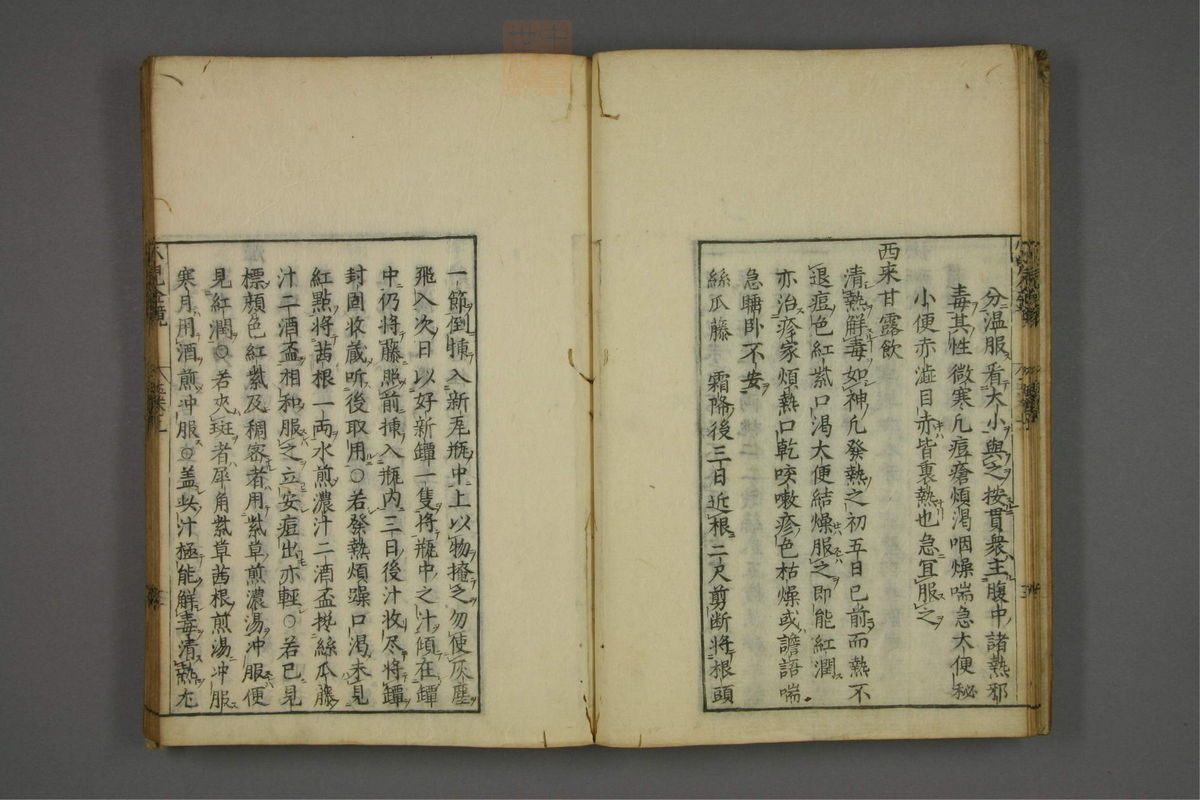 分温服看大小與之按貫衆主腹中諸熱邪
毒其性微寒凡痘瘡煩渴咽燥喘急大便秘
小便赤澁目赤皆裏熱也急宜服之
西来甘露飲
清熱解毒如神凡發熱之初五日已前而熱不
退痘色紅紫口渴大便結燥服之即能紅潤
亦治疹家煩熱口乾咳嗽疹色枯燥或譫語喘
急睡卧不安
絲瓜藤 霜降後三日近根二尺剪断将根頭
一節倒揀入新瓦瓶中上以物掩之勿使灰塵
飛入次日以好新罈一隻将瓶中之汁傾在罈
中仍将藤照前揀入瓶内三日後汁收尽将罈
封固收蔵听後取用○若發熱煩躁口渴未見
紅點将茜根一両水煎濃汁二酒盃攙絲瓜藤
汁二酒盃相和服之立安痘出亦輕○若已見
標顔色紅紫及稠密者用紫草煎濃湯冲服便
見紅潤○若夾斑者犀角紫草茜根煎湯冲服
寒月用酒煎冲服○盖此汁極能解毒清熱尤